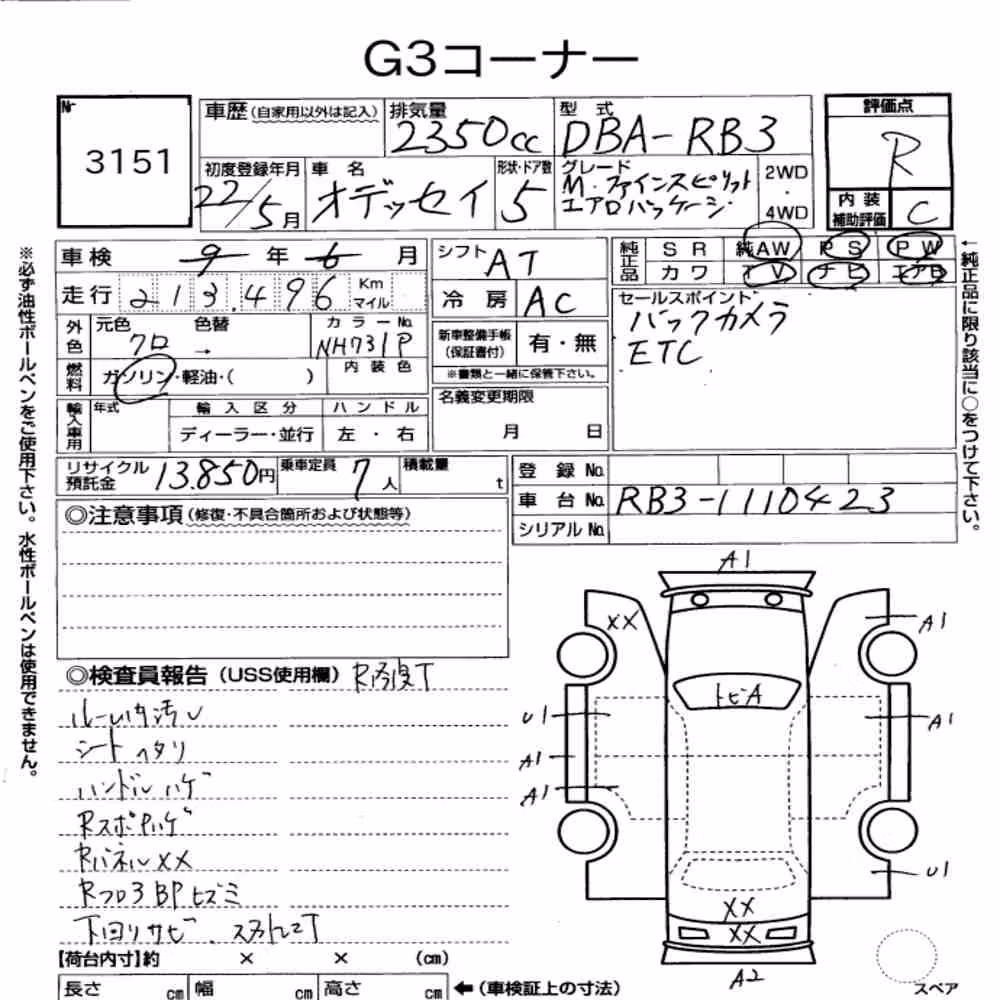 G3コーナー
Nr
3151
車歴(自家用以外は記入)
排気量
2350cc
型 式
DBA-RB3
評価点
R
初度登録年月
22/5月
車 名
オデッセイ
形状・ドア数
5
グレード
M.ファインスピリット
エアロパッケージ
2WD
・
4WD
内 装
補助評価
C
車検 9 年 6 月
走行 213.496 Km
マイル
外色
元色 クロ
色替 →
カラーNo.
NH731P
燃料
ガソリン・軽油・( )
内 装 色
輸入車用
年式
輸 入 区 分
ディーラー・並行
ハ ン ド ル
左 ・ 右
シフト AT
冷 房 AC
新車整備手帳
(保証書付)
有・無
※書類と一緒に保管下さい。
名義変更期限
月 日
純正品
S R 純AW P S P W
カ ワ T V ナ ビ エアB
セールスポイント
バックカメラ
ETC
←純正品に限り該当に○をつけて下さい。
※必ず油性ボールペンをご使用下さい。水性ボールペンは使用できません。
リサイクル
預託金
13.850円
乗車定員
7人
積載量
t
登 録 No.
車 台 No. RB3-1110423
シリアル No.
◎注意事項(修復・不具合箇所および状態等)
◎検査員報告(USS使用欄)
ルーム内汚レ
シートヘタリ
ハンドルハゲ
RスポPハゲ
RパネルXX
Rフロ3BPヒズミ
下回りサビ.
A1
XX
A1
トビA
U1
A1
A1
A1
U1
XX
XX
A2
スペア
【荷台内寸】約 × × (cm)
長さ cm
幅 cm
高さ cm
←(車検証上の寸法)